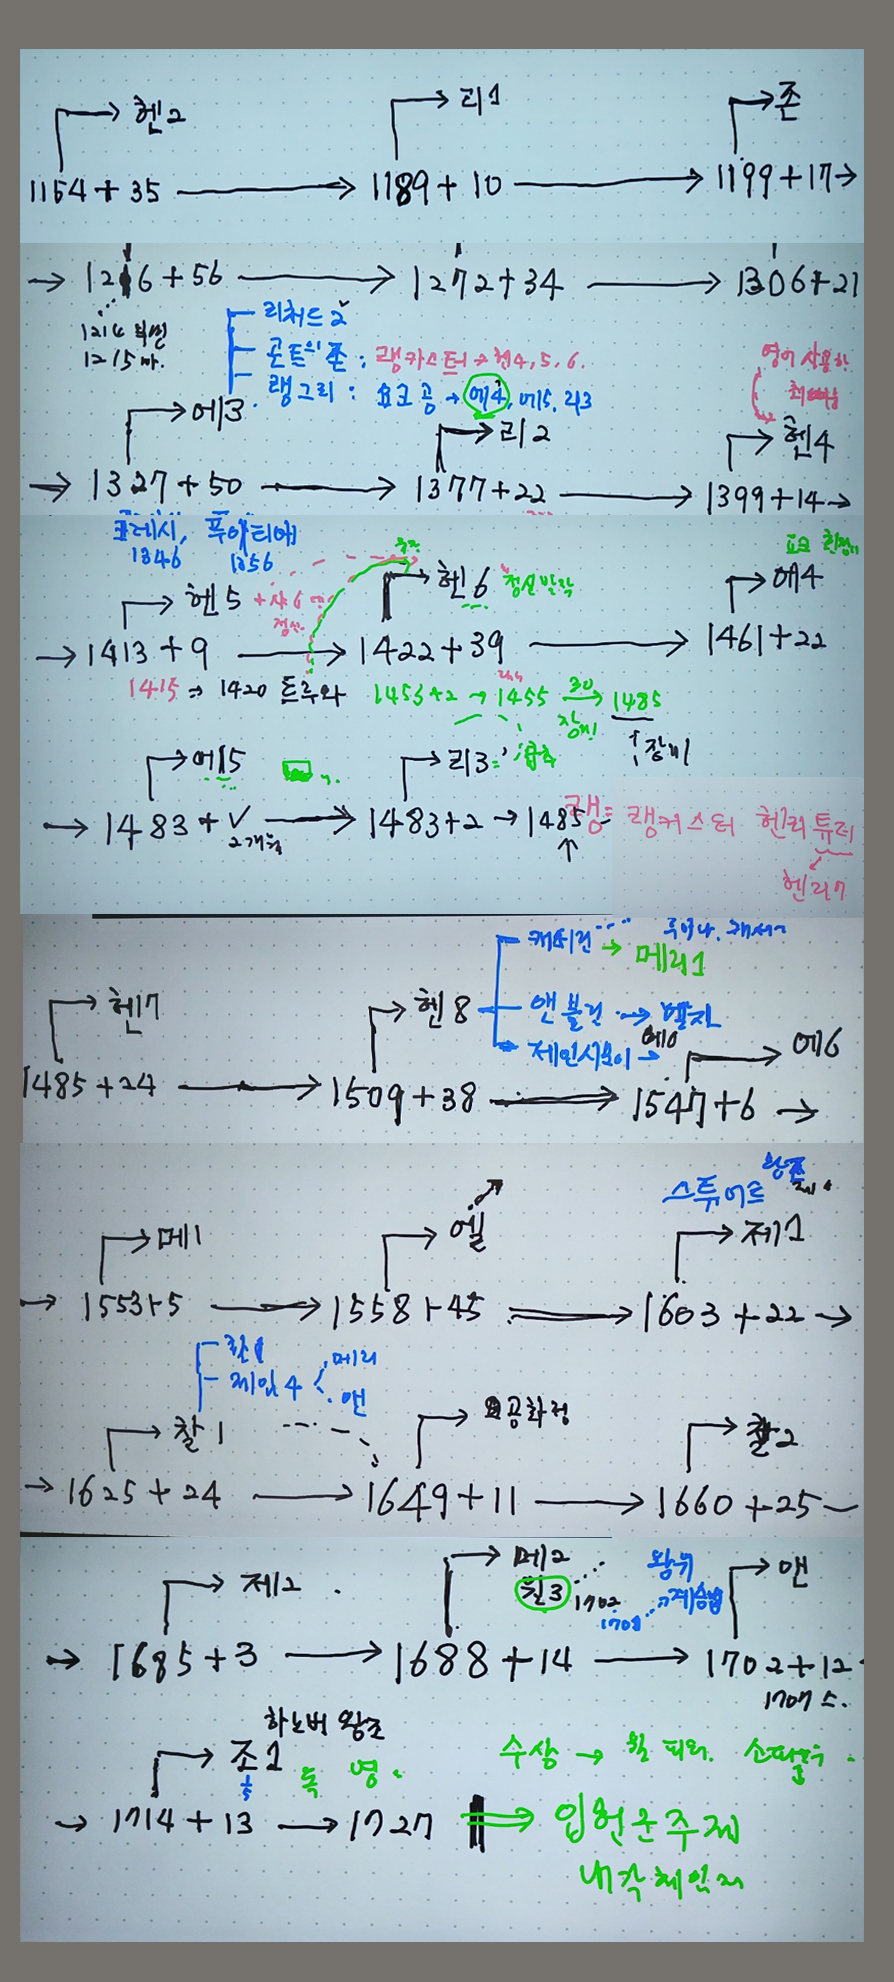 헨2 리1 존
1154+35 → 1189+10 → 1199+17→
→ 1216+56 → 1272+34 → 1306+21
리처드 2
1215 마.
곤트의 존 : 랭카스터→헨4, 5, 6.
랭그리 : 요크 공 → 에4, 에5, 리3
영어 사용한
에3 리2 헨4
→ 1327+50 → 1377+22 → 1399+14→
크레시, 푸아티에
1346 1356
헨5 헨6 정신발작 에4
→ 1413+9 → 1422+39 → 1461+22
1415 ⇒ 1420 트루와 1453+2 → 1455 30→ 1485
장미 ↑장미
에5 리3
→ 1483+✓ → 1483+2 → 1485
2개월 ↑
랭= 랭커스터 헨리튜더
헨리7
캐서린 → 메리1
헨7 헨8 앤 불린 → 엘자
제인시모어→에6 에6
1485+24 → 1509+38 → 1547+6 →
스튜어트 왕조
메1 엘 제1
→ 1553+5 → 1558+45 → 1603+22 →
찰1
제임4 메리
앤
찰1 공화정 찰2
→ 1625+24 → 1649+11 → 1660+25
제2 메2 왕위 앤
윌3 1702 계승법
1701
→ 1685+3 → 1688+14 → 1702+12
1707 스.
하노버 왕조
조1 독 영. 수상 → 월 피의.
→ 1714+13 → 1727 ⇒ 입헌군주제
내각책임제